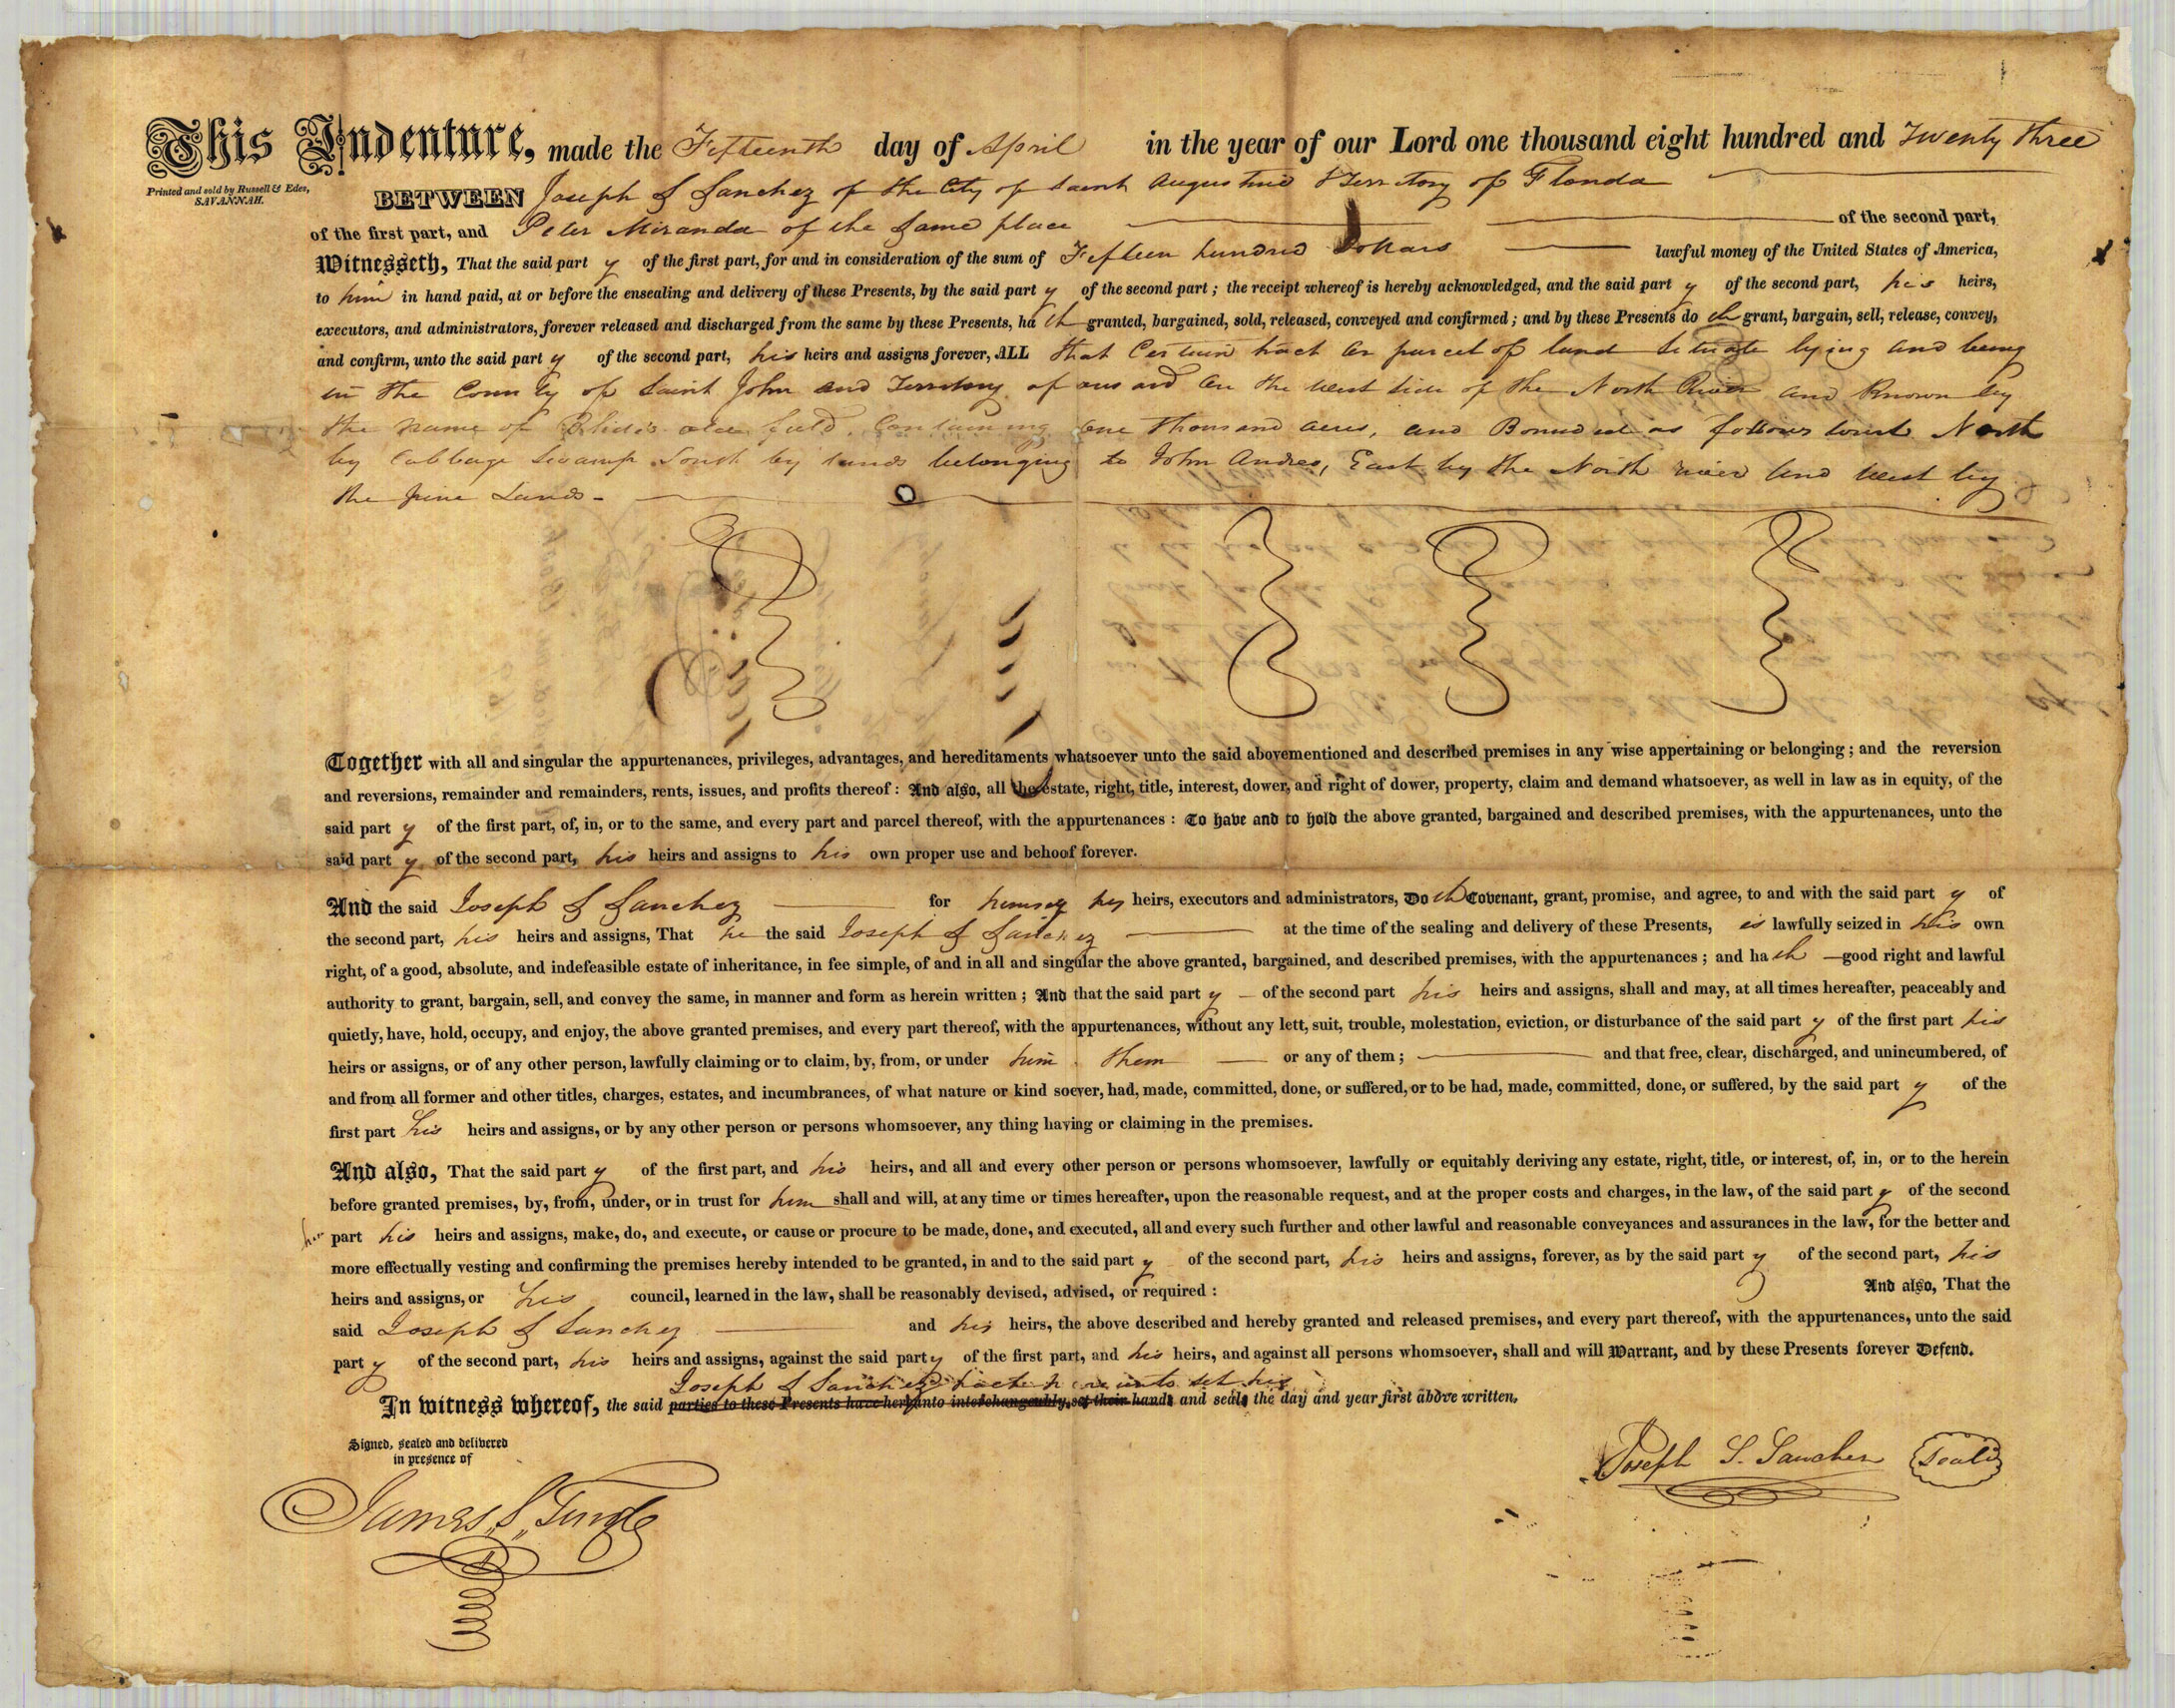 This Indenture, made the Fifteenth day of April in the year of our Lord one thousand eight hundred and Twenty three
Printed and sold by Russell & Edes,
SAVANNAH.
BETWEEN Joseph S Sanchez of the City of Saint Augustine & Territory of Florida
of the first part, and Peter Miranda of the Same place of the second part,
Witnesseth, That the said part y of the first part, for and in consideration of the sum of Fifteen hundred Dollars lawful money of the United States of America,
to him in hand paid, at or before the ensealing and delivery of these Presents, by the said part y of the second part ; the receipt whereof is hereby acknowledged, and the said part y of the second part, his heirs,
executors, and administrators, forever released and discharged from the same by these Presents, ha th granted, bargained, sold, released, conveyed and confirmed ; and by these Presents do th grant, bargain, sell, release, convey,
and confirm, unto the said part y of the second part, his heirs and assigns forever, ALL that Certain tract or parcel of land Situate lying and being
in the County of Saint John and Territory afousaid on the West Side of the North River and Known by
the name of old field, Containing one thousand acres, and Bounded as follows towit North
by Cabbage Swamp South by lands belonging to John Andreo, East by the North river and West by
the pine Lands -
Together with all and singular the appurtenances, privileges, advantages, and hereditaments whatsoever unto the said abovementioned and described premises in any wise appertaining or belonging ; and the reversion
and reversions, remainder and remainders, rents, issues, and profits thereof : And also, all the estate, right, title, interest, dower, and right of dower, property, claim and demand whatsoever, as well in law as in equity, of the
said part y of the first part, of, in, or to the same, and every part and parcel thereof, with the appurtenances : To have and to hold the above granted, bargained and described premises, with the appurtenances, unto the
said part y of the second part, his heirs and assigns to his own proper use and behoof forever.
And the said Joseph S Sanchez for himself his heirs, executors and administrators, Do th Covenant, grant, promise, and agree, to and with the said part y of
the second part, his heirs and assigns, That he the said Joseph S Sanchez at the time of the sealing and delivery of these Presents, is lawfully seized in his own
right, of a good, absolute, and indefeasible estate of inheritance, in fee simple, of and in all and singular the above granted, bargained, and described premises, with the appurtenances ; and ha th good right and lawful
authority to grant, bargain, sell, and convey the same, in manner and form as herein written ; And that the said part y of the second part his heirs and assigns, shall and may, at all times hereafter, peaceably and
quietly, have, hold, occupy, and enjoy, the above granted premises, and every part thereof, with the appurtenances, without any lett, suit, trouble, molestation, eviction, or disturbance of the said part y of the first part his
heirs or assigns, or of any other person, lawfully claiming or to claim, by, from, or under him them or any of them ; and that free, clear, discharged, and unincumbered, of
and from all former and other titles, charges, estates, and incumbrances, of what nature or kind soever, had, made, committed, done, or suffered, or to be had, made, committed, done, or suffered, by the said part y of the
first part his heirs and assigns, or by any other person or persons whomsoever, any thing having or claiming in the premises.
And also, That the said part y of the first part, and his heirs, and all and every other person or persons whomsoever, lawfully or equitably deriving any estate, right, title, or interest, of, in, or to the herein
before granted premises, by, from, under, or in trust for him shall and will, at any time or times hereafter, upon the reasonable request, and at the proper costs and charges, in the law, of the said part y of the second
part his heirs and assigns, make, do, and execute, or cause or procure to be made, done, and executed, all and every such further and other lawful and reasonable conveyances and assurances in the law, for the better and
more effectually vesting and confirming the premises hereby intended to be granted, in and to the said part y of the second part, his heirs and assigns, forever, as by the said part y of the second part, his
heirs and assigns, or his council, learned in the law, shall be reasonably devised, advised, or required : And also, That the
said Joseph S Sanchez and his heirs, the above described and hereby granted and released premises, and every part thereof, with the appurtenances, unto the said
part y of the second part, his heirs and assigns, against the said part y of the first part, and his heirs, and against all persons whomsoever, shall and will Warrant, and by these Presents forever Defend.
Joseph S Sanchez hereunto set his
In witness whereof, the said parties to these Presents have hereunto interchangeably set their hands and seals the day and year first above written.
Signed, sealed and delivered
in presence of
Joseph S. Sanchez Seal
James S. Tingle